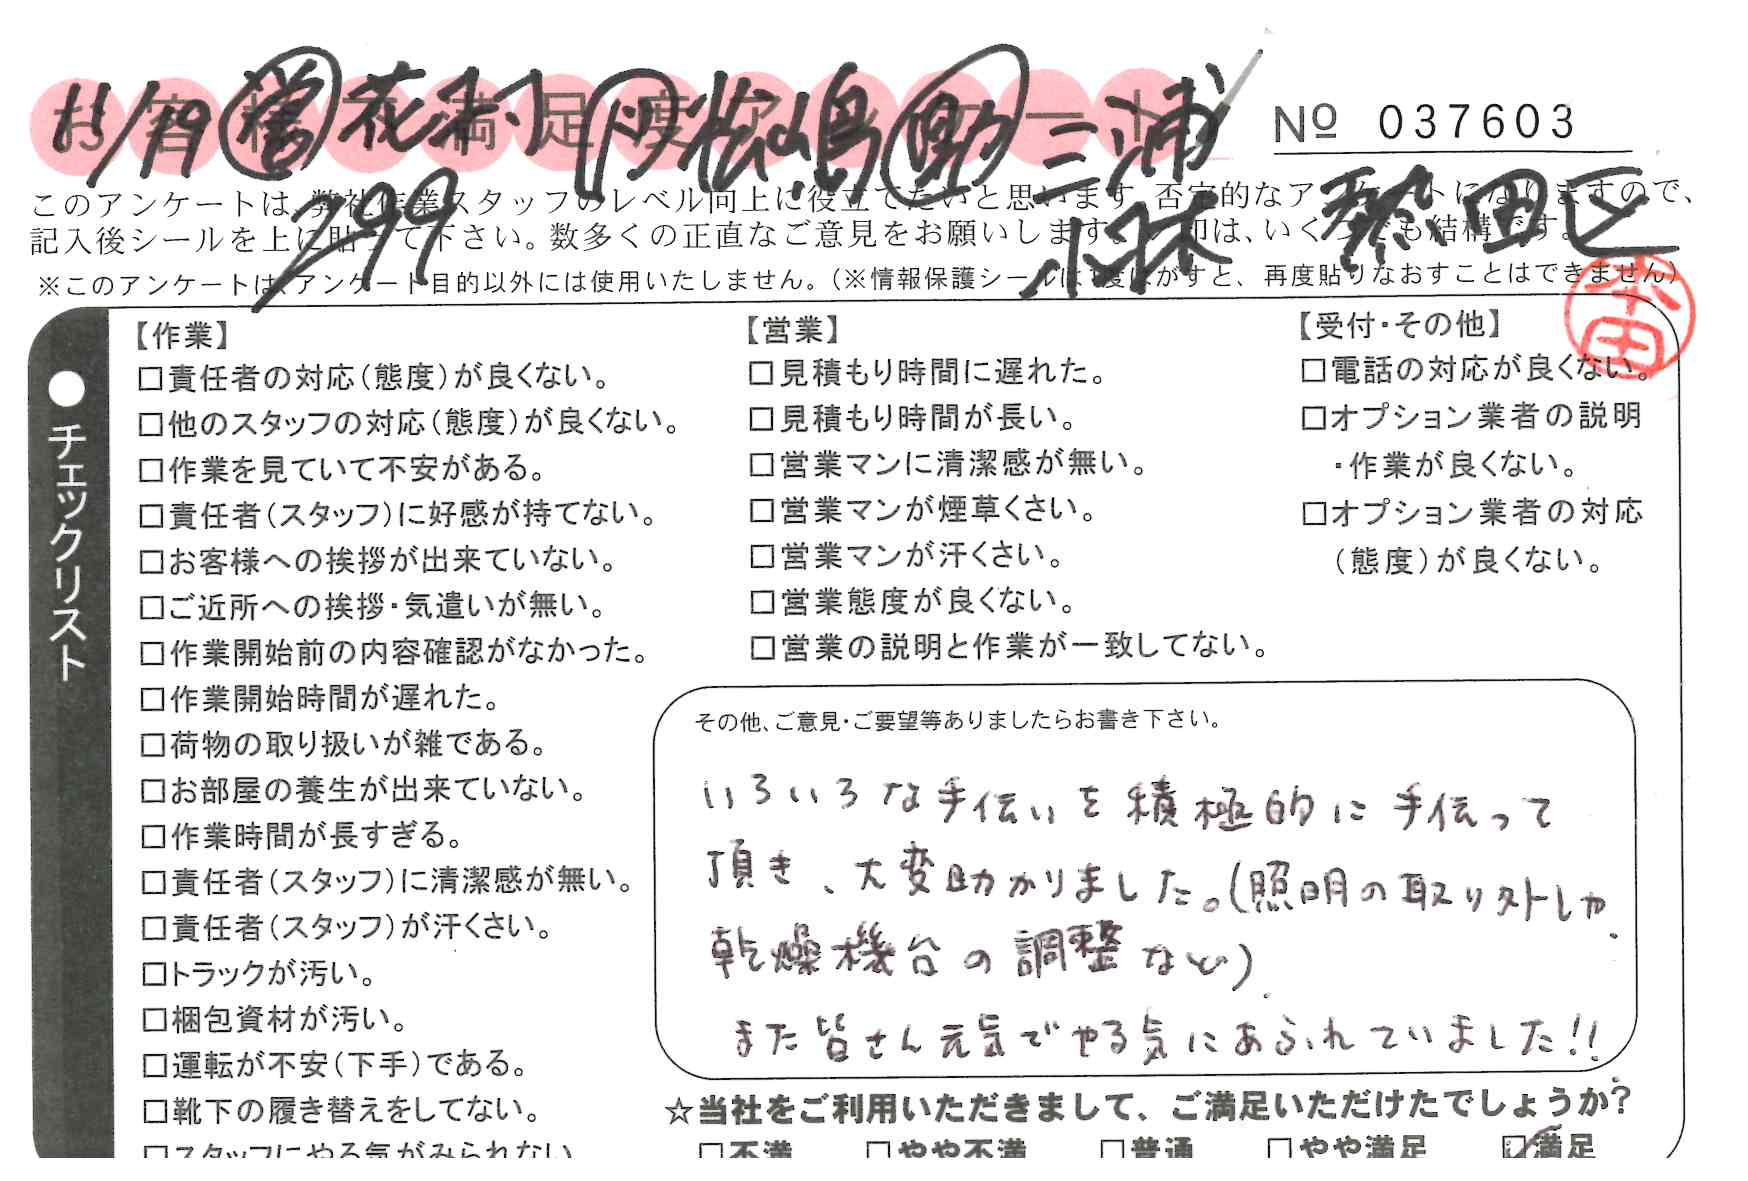 お客様満足度アンケート
11/19 営 花村 松島 助 三浦
299 小林 熱田区
Nº 037603
このアンケートは、弊社作業スタッフのレベル向上に役立てたいと思います。否定的なアンケートになりますので、
記入後シールを上に貼って下さい。数多くの正直なご意見をお願いします。レ印は、いくつでも結構です。
※このアンケートは、アンケート目的以外には使用いたしません。(※情報保護シールは1度はがすと、再度貼りなおすことはできません)
●チェックリスト
【作業】
□責任者の対応(態度)が良くない。
□他のスタッフの対応(態度)が良くない。
□作業を見ていて不安がある。
□責任者(スタッフ)に好感が持てない。
□お客様への挨拶が出来ていない。
□ご近所への挨拶・気遣いが無い。
□作業開始前の内容確認がなかった。
□作業開始時間が遅れた。
□荷物の取り扱いが雑である。
□お部屋の養生が出来ていない。
□作業時間が長すぎる。
□責任者(スタッフ)に清潔感が無い。
□責任者(スタッフ)が汗くさい。
□トラックが汚い。
□梱包資材が汚い。
□運転が不安(下手)である。
□靴下の履き替えをしてない。
□スタッフにやる気がみられない
【営業】
□見積もり時間に遅れた。
□見積もり時間が長い。
□営業マンに清潔感が無い。
□営業マンが煙草くさい。
□営業マンが汗くさい。
□営業態度が良くない。
□営業の説明と作業が一致してない。
【受付・その他】
□電話の対応が良くない。
□オプション業者の説明
・作業が良くない。
□オプション業者の対応
(態度)が良くない。
その他、ご意見・ご要望等ありましたらお書き下さい。
いろいろな手伝いを積極的に手伝って
頂き、大変助かりました。(照明の取り外しや
乾燥機台の調整など)
また皆さん元気でやる気にあふれていました!!
☆当社をご利用いただきまして、ご満足いただけたでしょうか?
□不満 □やや不満 □普通 □やや満足 ☑満足